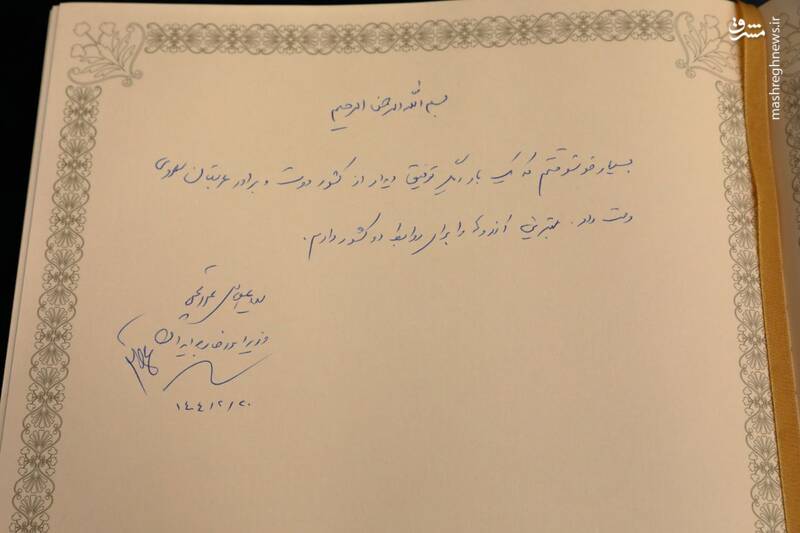 بسم الله الرحمن الرحیم
بسیار خوشوقتم که یک بار دیگر توفیق دیدار از کشور دوست و برادر عربستان سعودی
دست داد. بهترین آرزوها را برای روابط دو کشور دارم.
سید عباس عراقچی
وزیر امور خارجه ایران
۱۴۰۴/۲/۲۰
مشرق
mashreghnews.ir